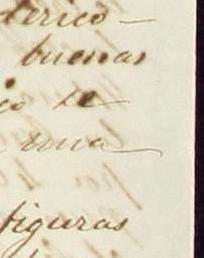 derico
buenas
co se
una
figuras